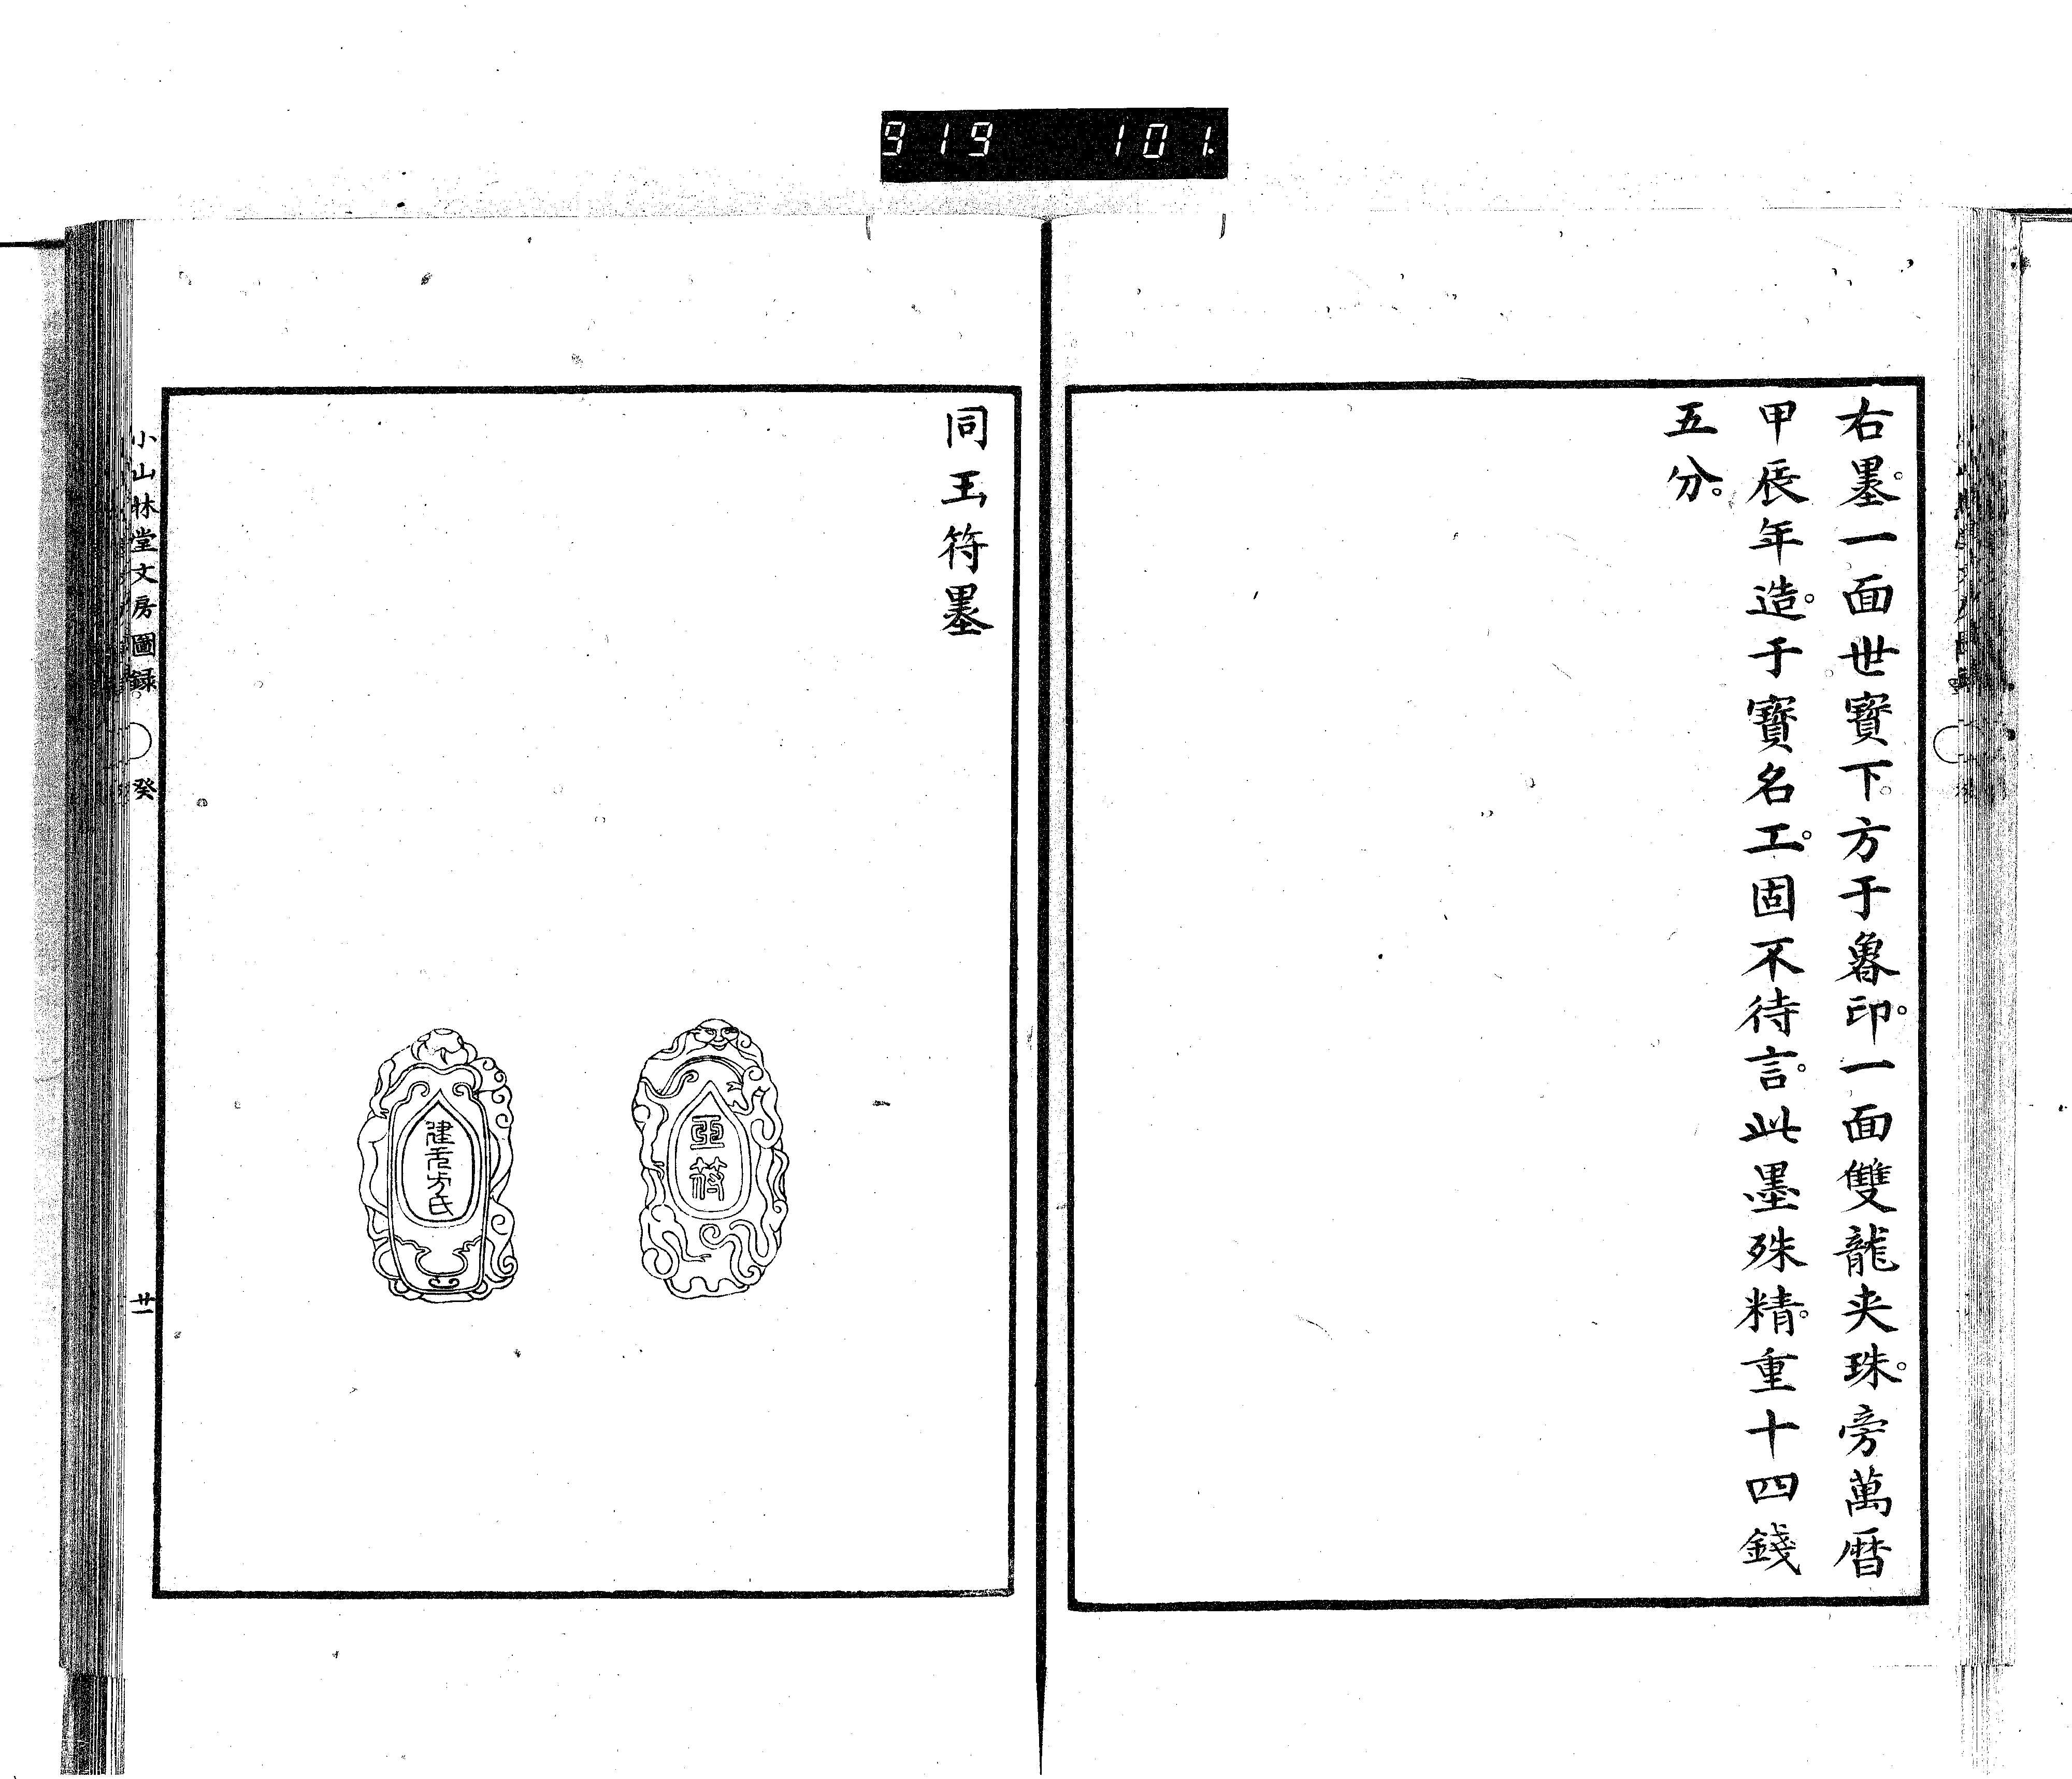 919 101.
右墨。一面世寶下。方于魯印。一面雙龍夾珠。旁萬暦
甲辰年造。于寶名工。固不待言。此墨殊精。重十四錢
五分。
同玉符墨
建元方氏
小山林堂文房圖録 癸 廿一